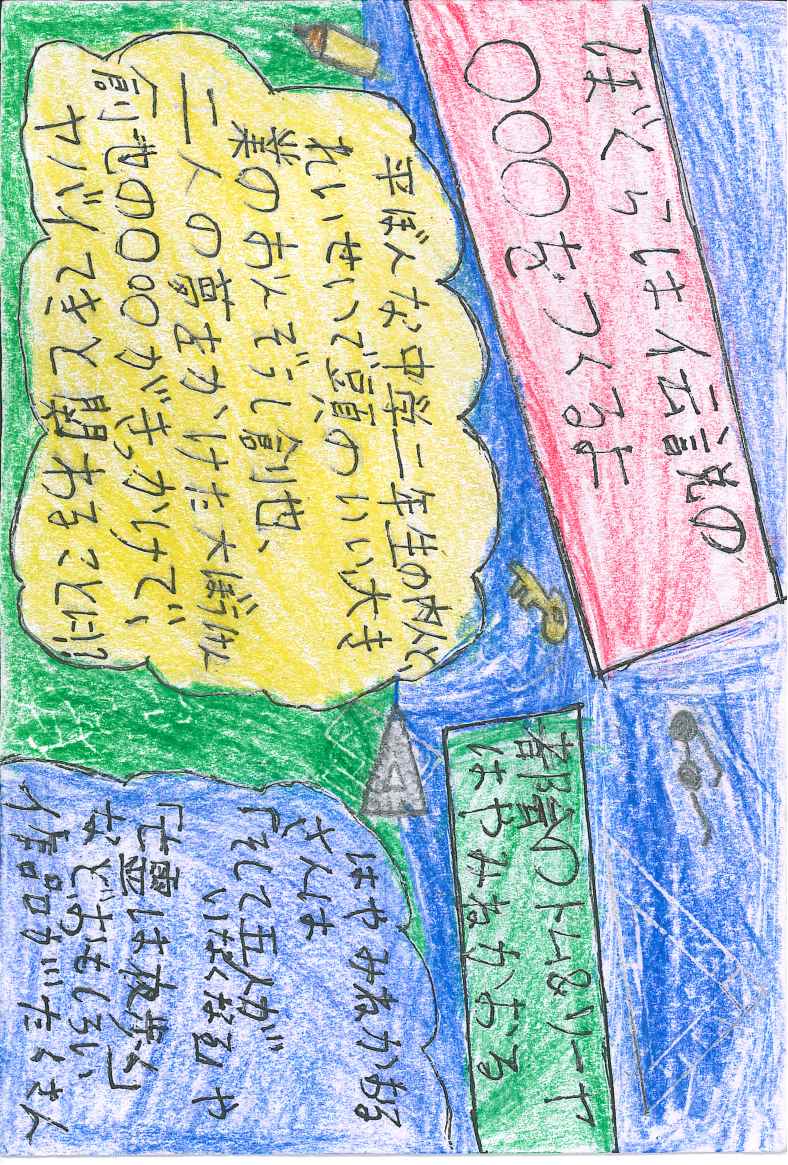 ぼくらは伝説の
〇〇〇をつくるよ
平ぼんな中学二年生の内人と、
れいせいで頭のいい大き
業のおんぞうし創也、
二人の夢をかけた大ぼうけん
創也の〇〇〇がきっかけで、
ヤバイてきと闘わることに!?
都会のトム&ソーヤ
はやみねかおる
はやみねかおる
さんは
『そして五人が
いなくなる』や
『亡霊は夜歩く』
などおもしろい
作品がたくさん